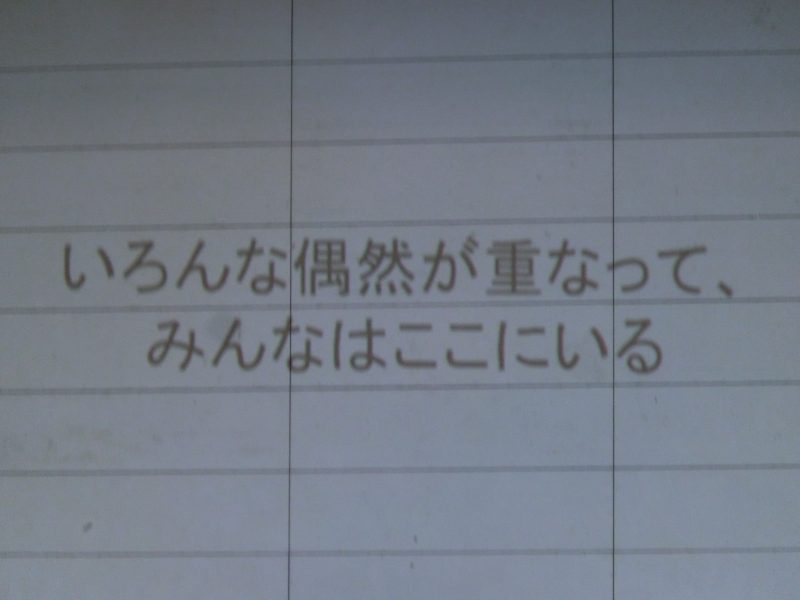 いろんな偶然が重なって、
みんなはここにいる